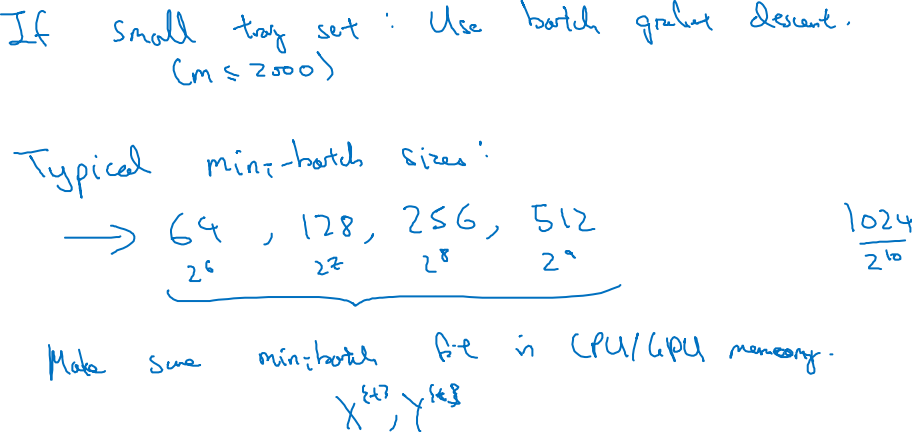 If small tray set : Use batch gradient descent.
(m ≤ 2000)
Typical mini-batch sizes:
→ 64, 128, 256, 512 1024
2^6 2^7 2^8 2^9 2^10
Make sure minibatch fit in CPU/GPU memory.
X^{t}, Y^{t}